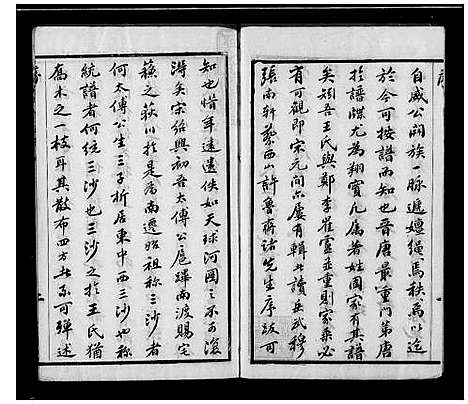 自威公開族一脉遞嬗绳馬秩焉以迄
於今可按譜而知也晉唐最重門第唐
於譜牒尤為翔實凡属著姓國家有其譜
矣矧吾王氏與鄭李崔盧並重則家乘必
有可觀即宋元间亦屢有輯此讀岳武穆
張南軒蔡西山許魯齋諸先生序跋可
知也惜年遠遺佚如天球河圖之不可復
得矣宋紹興初吾太傅公扈蹕南渡賜宅
蘇之荻川於是為南遷始祖称三沙者
何太傅公生三子折居東中西三沙也称
統譜者何統三沙也三沙之於王氏猶
喬木之一枝耳其散布四方者不可殫述
序